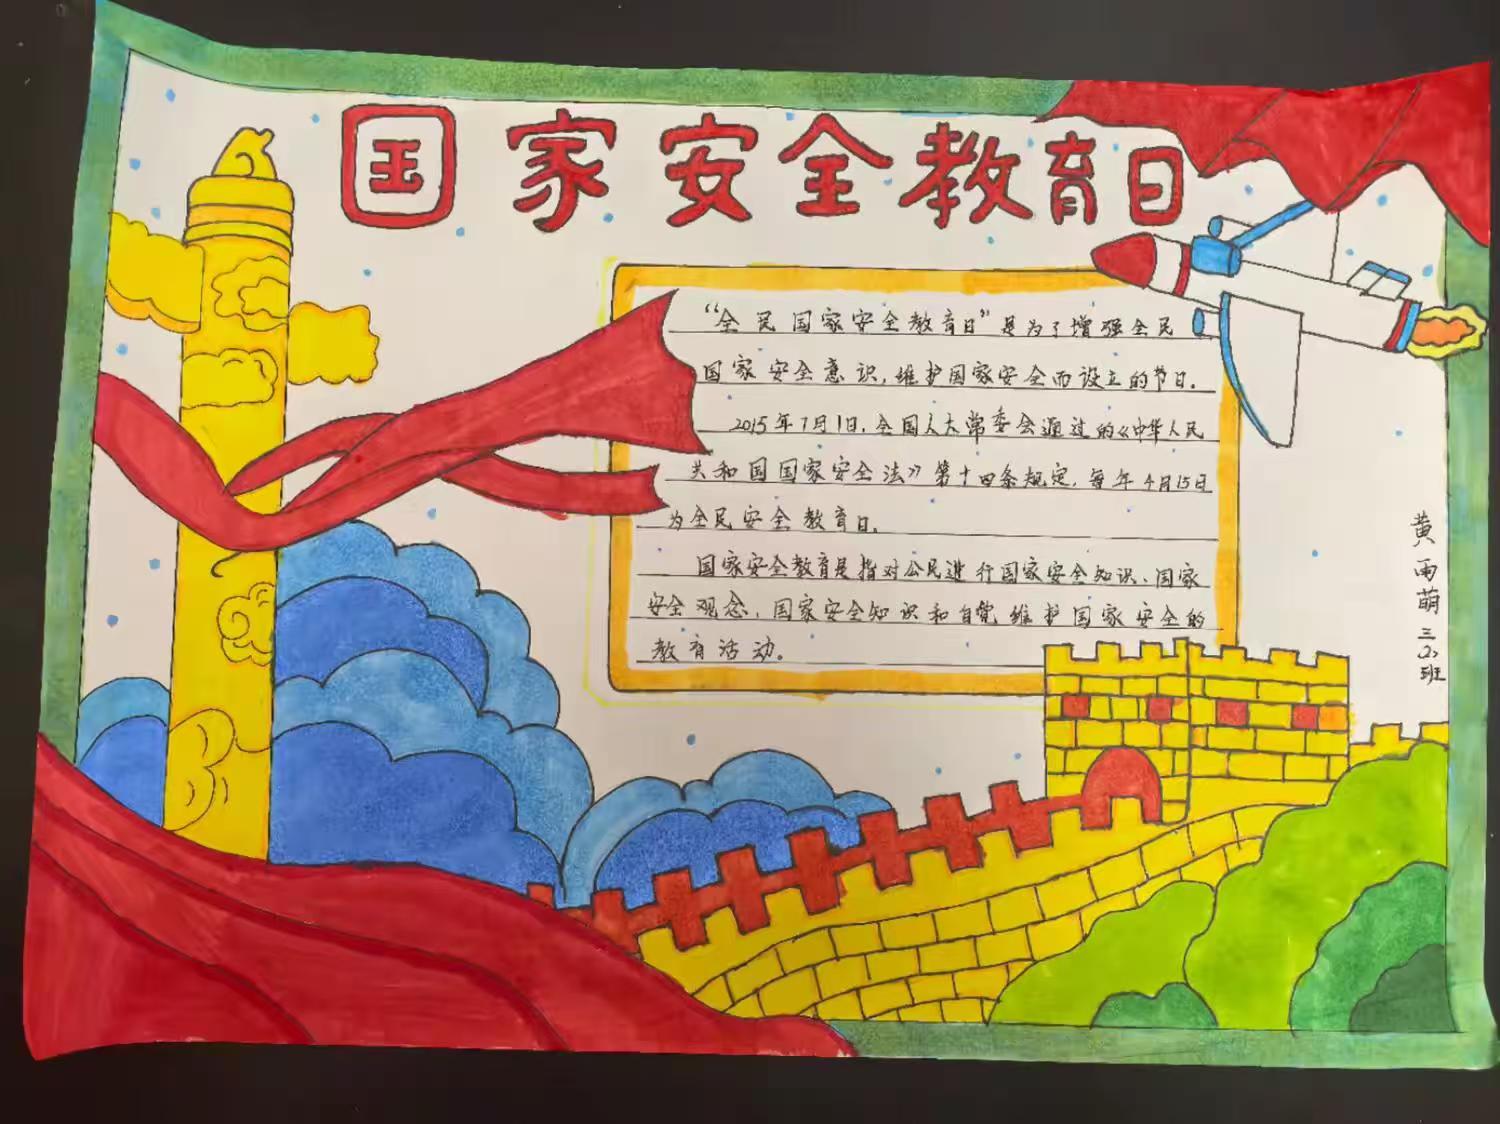 国家安全教育日
“全民国家安全教育日”是为了增强全民
国家安全意识,维护国家安全而设立的节日。
2015年7月1日,全国人大常委会通过的《中华人民
共和国国家安全法》第十四条规定,每年4月15日
为全民安全教育日。
国家安全教育是指对公民进行国家安全知识、国家
安全观念,国家安全知识和自觉维护国家安全的
教育活动。
黄雨萌三(2)班